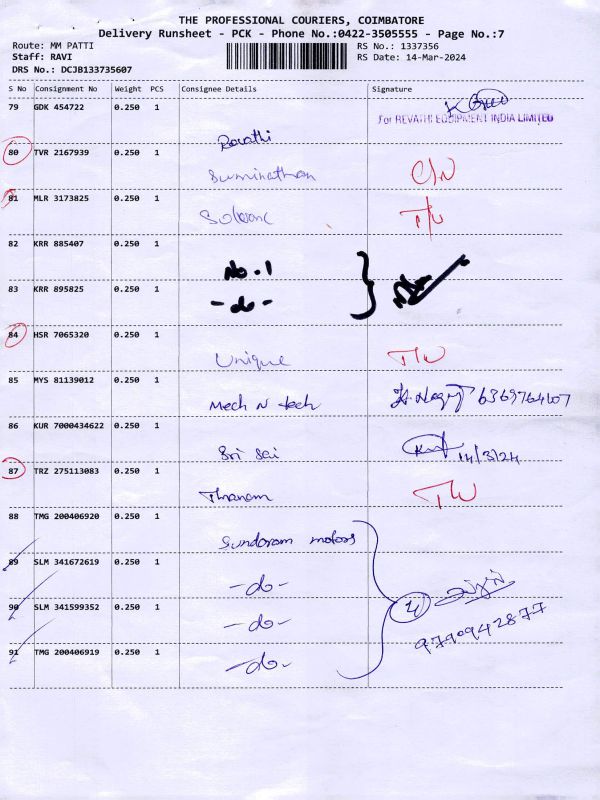 THE PROFESSIONAL COURIERS, COIMBATORE
Delivery Runsheet - PCK - Phone No.:0422-3505555 - Page No.:7
Route: MM PATTI
Staff: RAVI
DRS No.: DCJB133735607
RS No.: 1337356
RS Date: 14-Mar-2024
S No Consignment No Weight PCS Consignee Details Signature
79 GDK 454722 0.250 1
for REVATHI EQUIPMENT INDIA LIMITED
Revathi
80 TVR 2167939 0.250 1
81 MLR 3173825 0.250 1
82 KRR 885407 0.250 1
No. 1
83 KRR 895825 0.250 1
-do-
84 HSR 7065320 0.250 1
Unique
85 MYS 81139012 0.250 1
Mech N tech 6369764107
86 KUR 7000434622 0.250 1
Sri Sai 14/3/24
87 TRZ 275113083 0.250 1
88 TMG 200406920 0.250 1
Sundaram motors
89 SLM 341672619 0.250 1
-do-
90 SLM 341599352 0.250 1
-do-
9790942877
91 TMG 200406919 0.250 1
-do-